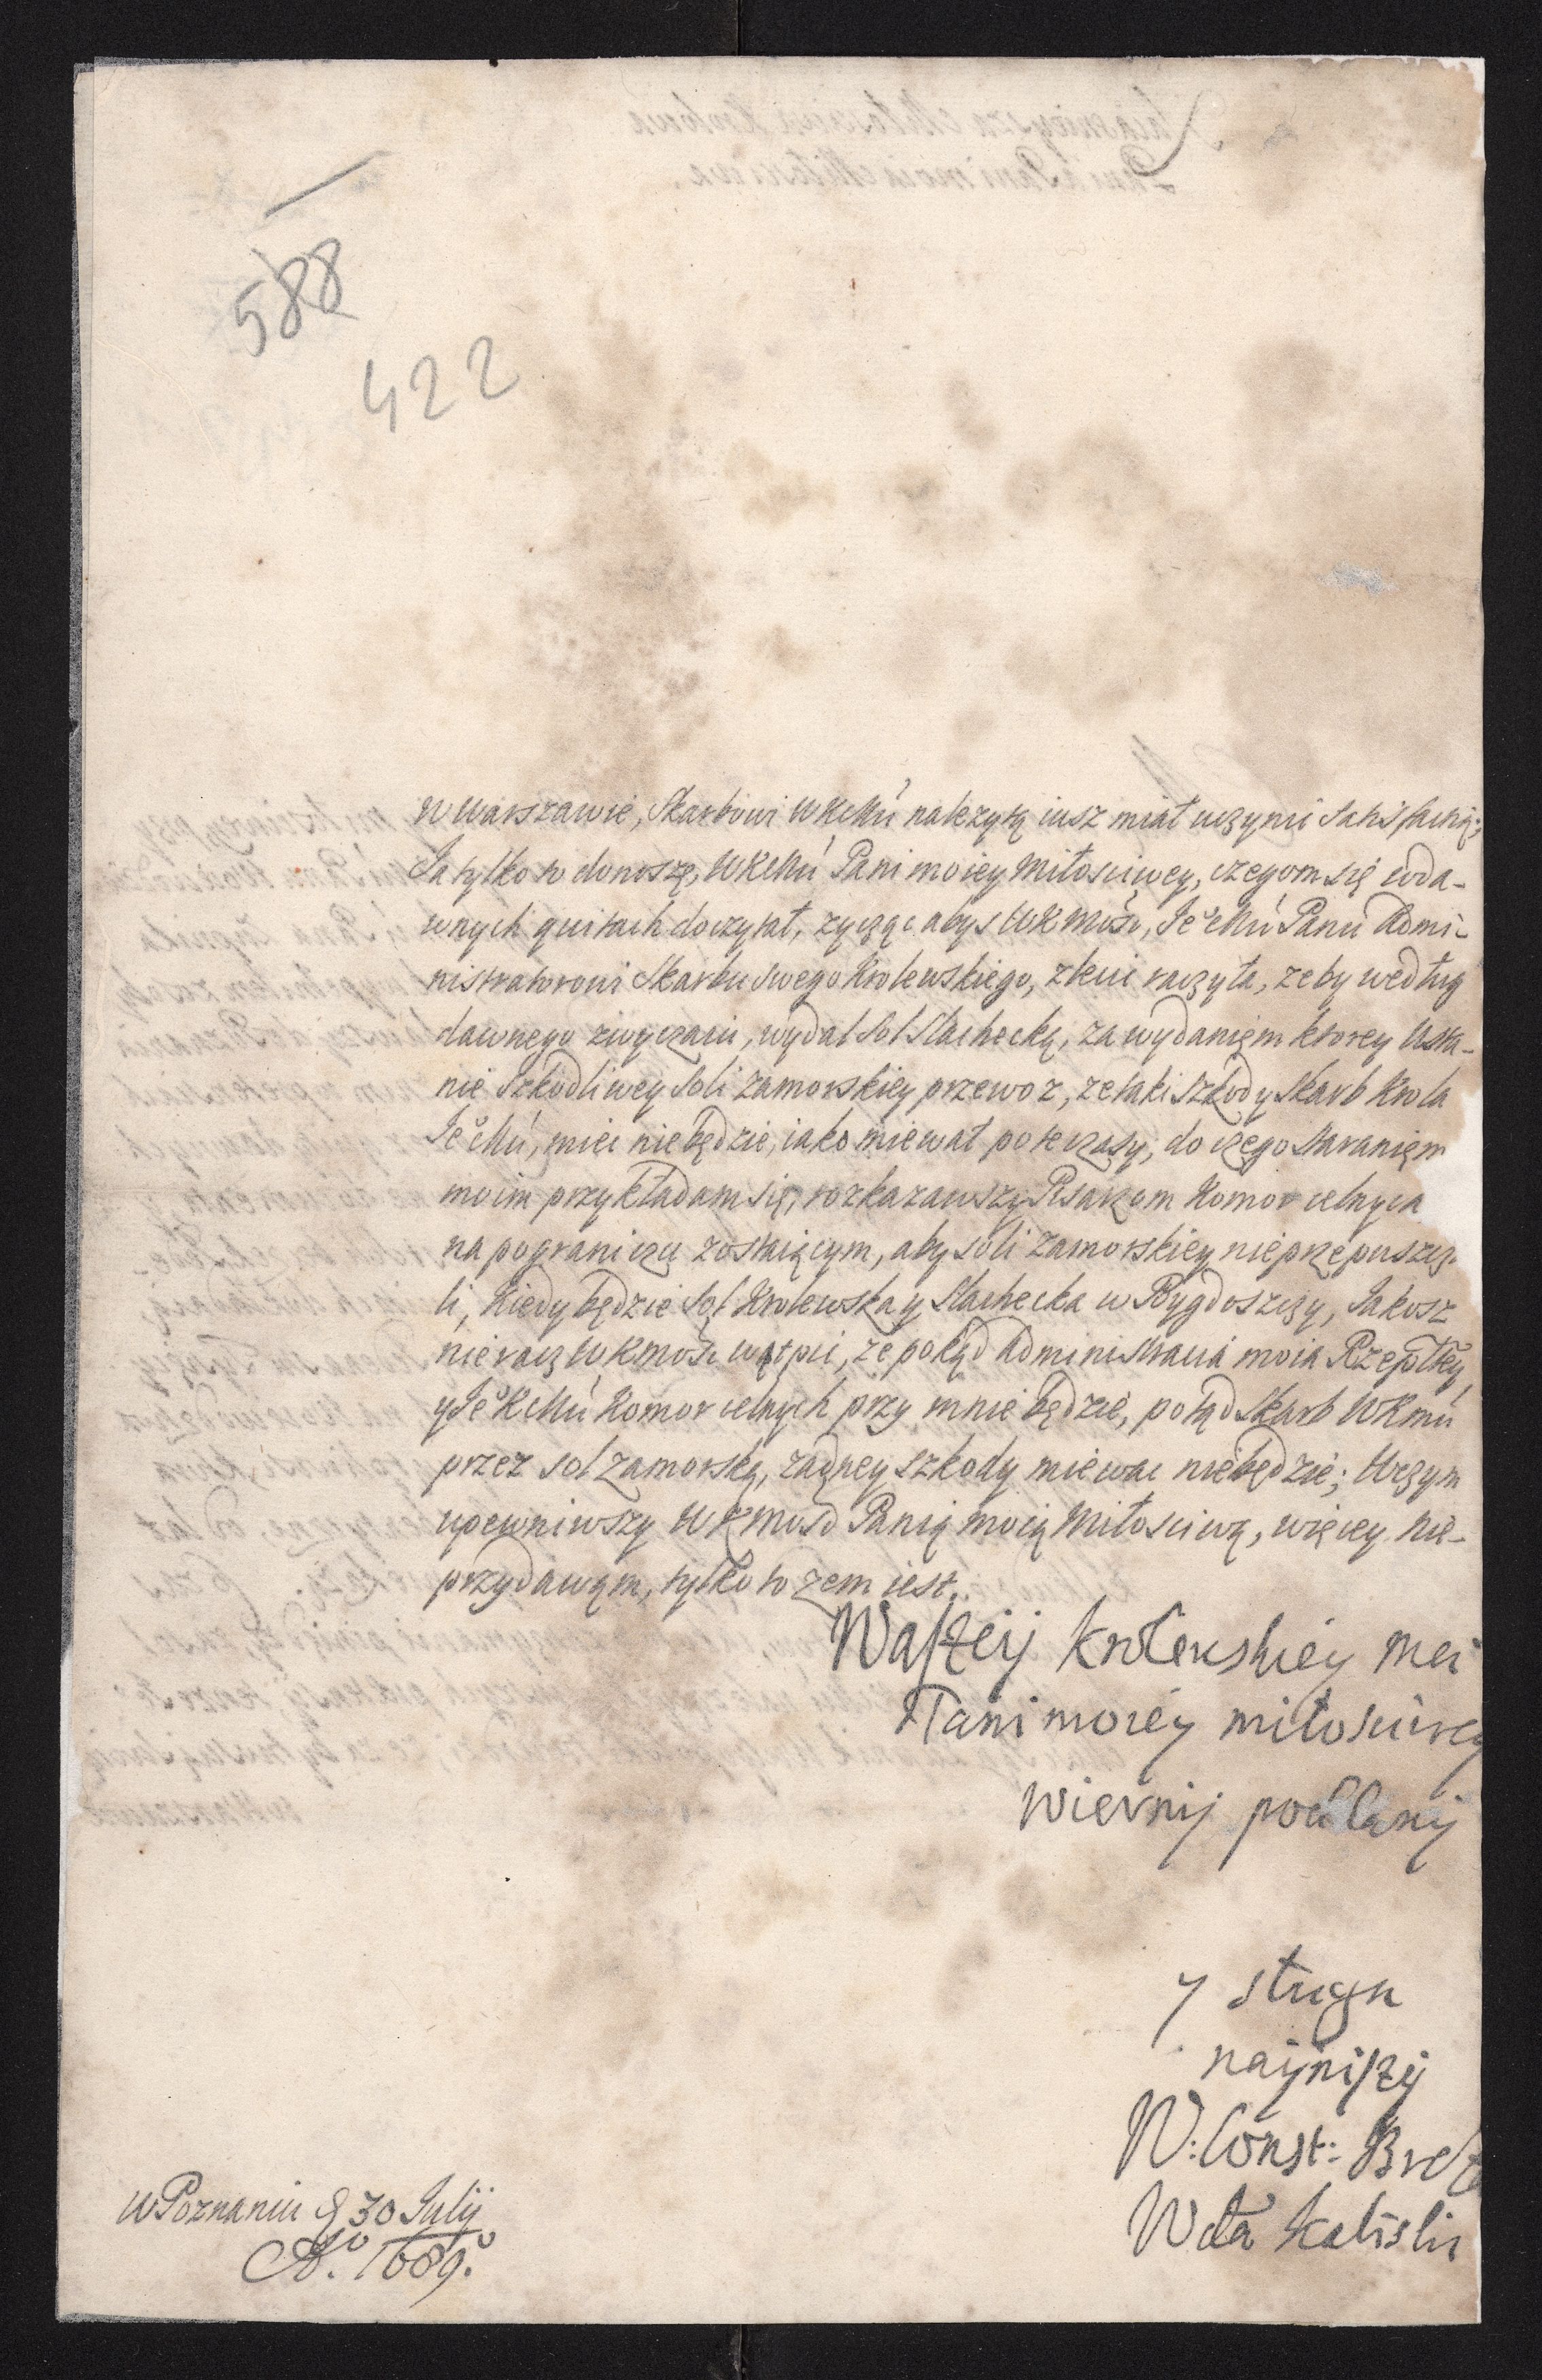 588
422
w Warszawie, Skarbowi WKMći należytą iusz miał uczynić Satisfactią;
Ja tylko to donoszę, WKMći Pani moiey Miłosciwey, czegom się w da-
wnych quitach doczytał, zycząc abys WKMość, Je° Mći Panu Admi-
nistratorowi Skarbu swego Krolewskiego, zlecić raczyła, zeby według
dawnego zwyczaiu, wydał Sol Slachecką, za wydanięm ktorey Usta-
nie szkodliwey Soli zamorskiey przewoz, ze taki szkody Skarb Krola
Je° Mći, mieć niebędzie, iako miewał po te czasy, do czego staranięm
moim przykładam się, rozkazawszy Pisarzom Komor celnych
na pograniczu zostaiącym, aby soli zamorskiey nieprzepuszcza-
li, kiedy będzie Sol Krolewska y Slachecka w Bygdoszczy, Jakosz
nieracz WKMość wątpić, ze pokąd Administratia moia Rzeptey
y Je° KMći Komor celnych przy mnie będzie, potąd Skarb WKMći
przez sol zamorską, zadney szkody miewac niebędzie; W czym
upewniwszy WKMość Panią moią Miłosciwą, więcey nie-
przydawam, tylko to zem iest.
Waszeij Krolewskiey Mci
Pani moiey miłosciwey
wiernij poddanij
y sługa
nayniszij
W: Const: Brez
Wda Kaliski
w Poznaniu d 30 Julij
A° 1689°